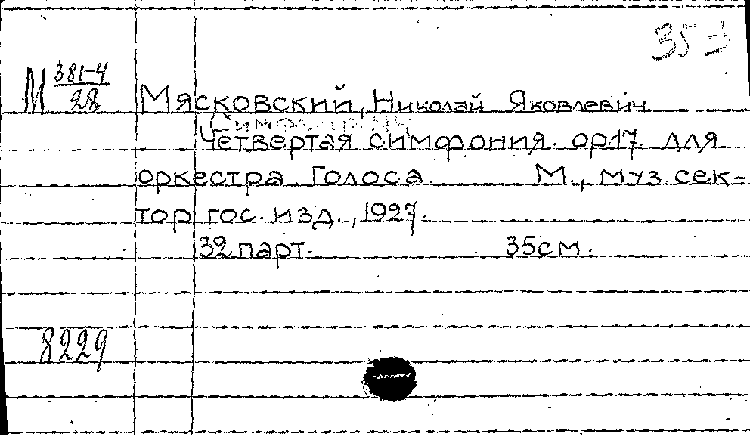 35-
М 381-4
28
Мясковский, Николай Яковлевич
Симфония
Четвертая симфония. ор17. для
оркестра Голоса М., муз.сек-
тор гос. изд., 1927.
32 парт. 35см.
8229